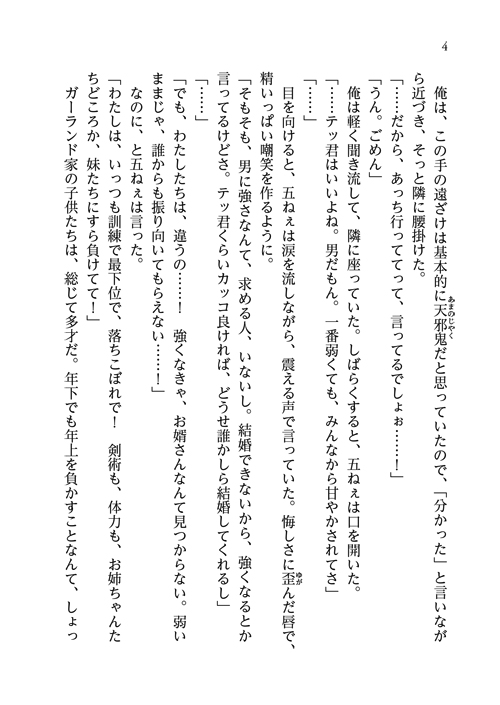 4
俺は、この手の遠ざけは基本的に天邪鬼だと思っていたので、「分かった」と言いなが
あまのじゃく
ら近づき、そっと隣に腰掛けた。
「……だから、あっち行ってってって、言ってるでしょぉ……！」
「うん。ごめん」
俺は軽く聞き流して、隣に座っていた。しばらくすると、五ねぇは口を開いた。
「……テッ君はいいよね。男だもん。一番弱くても、みんなから甘やかされてさ」
「……」
目を向けると、五ねぇは涙を流しながら、震える声で言っていた。悔しさに歪んだ唇で、
ゆが
精いっぱい嘲笑を作るように。
「そもそも、男に強さなんて、求める人、いないし。結婚できないから、強くなるとか
言ってるけどさ。テッ君くらいカッコ良ければ、どうせ誰かしら結婚してくれるし」
「……」
「でも、わたしたちは、違うの……！　強くなきゃ、お婿さんなんて見つからない。弱い
ままじゃ、誰からも振り向いてもらえない……！」
なのに、と五ねぇは言った。
「わたしは、いっつも訓練で最下位で、落ちこぼれで！　剣術も、体力も、お姉ちゃんた
ちどころか、妹たちにすら負けてて！」
ガーランド家の子供たちは、総じて多才だ。年下でも年上を負かすことなんて、しょっ